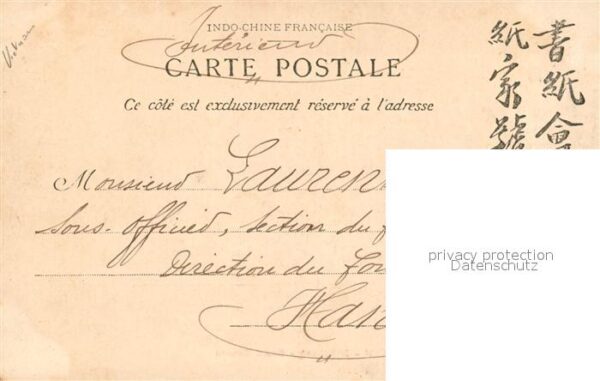 Vietnam
INDO-CHINE FRANÇAISE
Intérieur
CARTE POSTALE
Ce côté est exclusivement réservé à l'adresse
書紙會
紙家號
Monsieur Lauren
Sous-Officier, Section du
Direction du
Han
privacy protection
Datenschutz